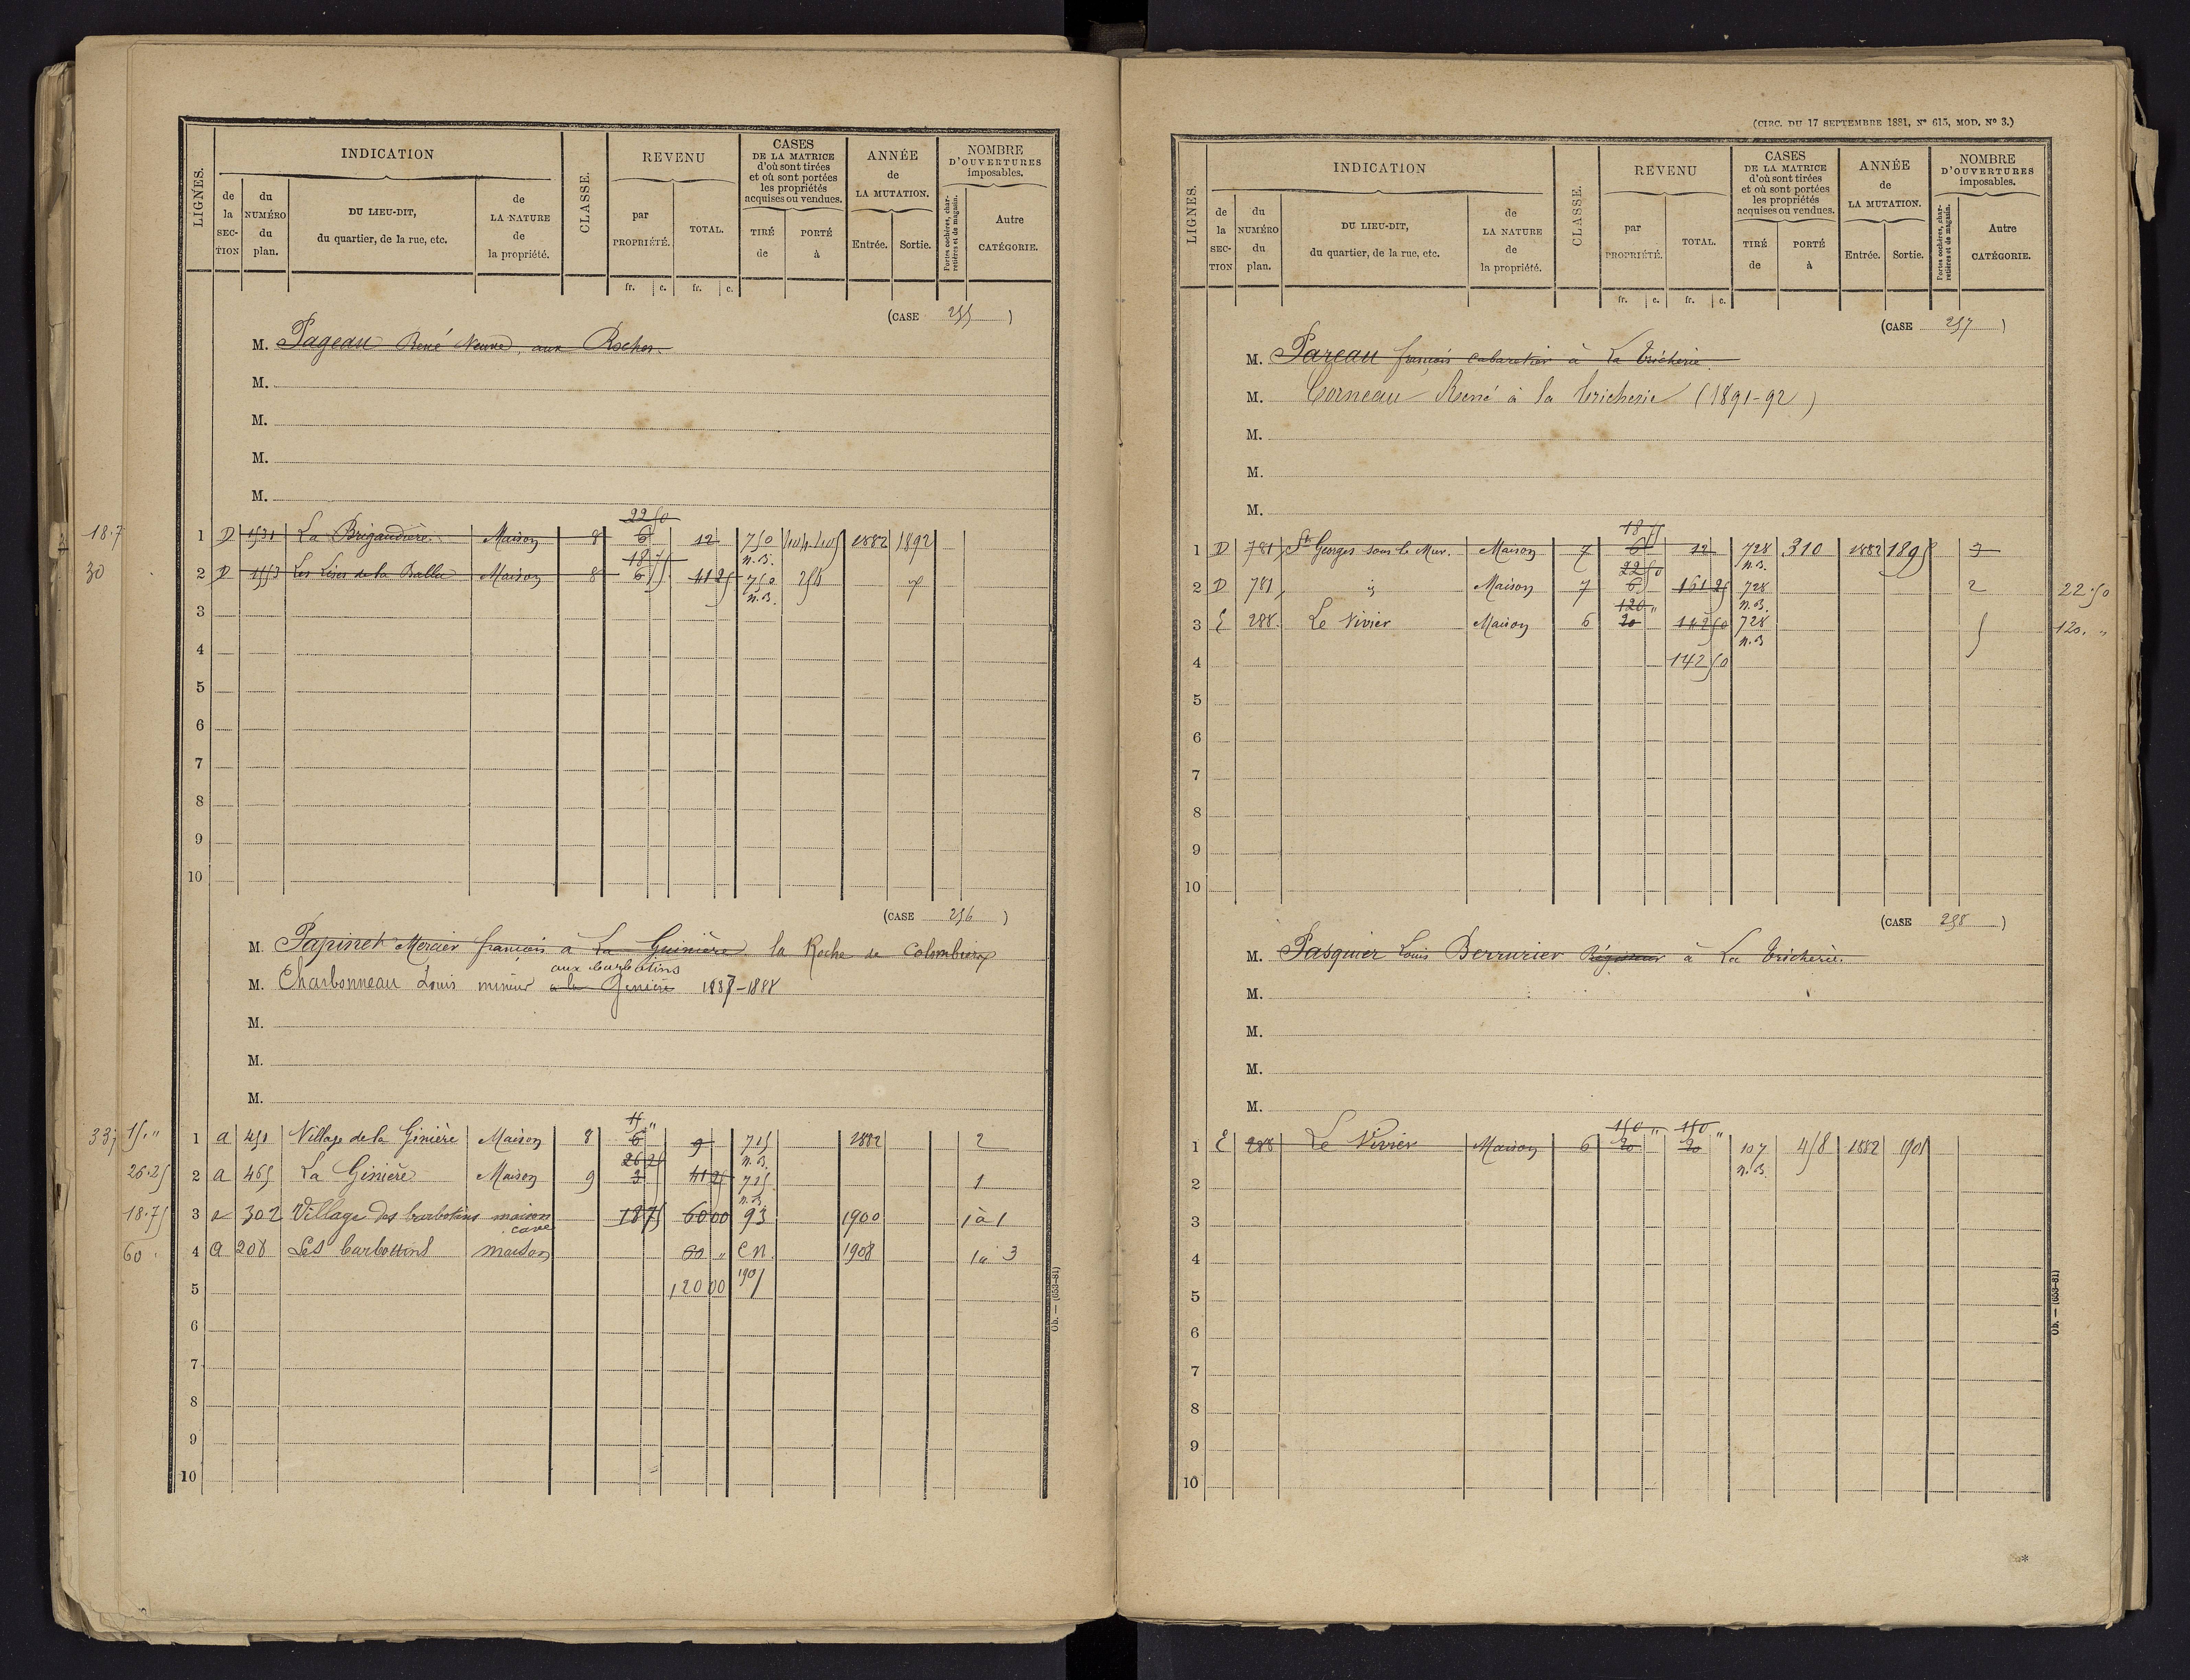 LIGNES.
INDICATION
de la SECTION
du NUMÉRO du plan.
DU LIEU-DIT, du quartier, de la rue, etc.
de LA NATURE de la propriété.
CLASSE.
REVENU
par PROPRIÉTÉ.
TOTAL.
CASES DE LA MATRICE d'où sont tirées et où sont portées les propriétés acquises ou vendues.
TIRÉ de
PORTÉ à
ANNÉE de LA MUTATION.
Entrée.
Sortie.
NOMBRE D'OUVERTURES imposables.
Portes cochères, charretières et de magasin.
Autre CATÉGORIE.
fr. c. fr. c.
(CASE 255)
M. Pageau René Veuve, aux Roches.
M.
M.
M.
M.
22 50
18.7 1 D 1531 La Brigaudière Maison 8 6 12 750 1882 1892
18 75 n.B.
30 2 D 1553 Les Lises de la Ballue Maison 8 6 41 25 750 254
n.B.
3
4
5
6
7
8
9
10
(CASE 256)
M. Papinet Mercier françois à La Guinière la Roche de Colombiers
aux barbotins
M. Charbonneau Louis mineur à la Genière 1887-1888
M.
M.
M.
15 "
15. " 1 a 451 Village de la Ginière Maison 8 6 9 725 1882 2
26 25 n.B.
26.25 2 a 465 La Ginière Maison 9 3 41 25 725 1
n.B.
18.75 3 a 302 Village des barbotins maison cave 18 75 60 00 93 1900 1 à 1
60. 4 a 208 Les barbottins maison 60 " C.N. 1908 1 à 3
5 120 00 1905
6
7
8
9
10
Ob. — (653-81)
(CIRC. DU 17 SEPTEMBRE 1881, N° 615, MOD. N° 3.)
LIGNES.
INDICATION
de la SECTION
du NUMÉRO du plan.
DU LIEU-DIT, du quartier, de la rue, etc.
de LA NATURE de la propriété.
CLASSE.
REVENU
par PROPRIÉTÉ.
TOTAL.
CASES DE LA MATRICE d'où sont tirées et où sont portées les propriétés acquises ou vendues.
TIRÉ de
PORTÉ à
ANNÉE de LA MUTATION.
Entrée.
Sortie.
NOMBRE D'OUVERTURES imposables.
Portes cochères, charretières et de magasin.
Autre CATÉGORIE.
fr. c. fr. c.
(CASE 257)
M. Pareau françois cabaretier à La Tricherie.
M. Corneau René à la tricherie (1891-92)
M.
M.
M.
18 75
1 D 781 St Georges sous le Mur. Maison 7 6 12 728 310 1882 1895 2
22 50 n.B.
2 D 781 id Maison 7 6 161 25 728 2 22.50
120 " n.B.
3 E 288. Le Vivier Maison 6 20 142 50 728 5 120. "
n.B
4 142 50
5
6
7
8
9
10
(CASE 258)
M. Pasquier Louis Berrurier Régisseur à La tricherie.
M.
M.
M.
M.
150 " 150 "
1 E 288 Le Vivier Maison 6 20 20 107 458 1882 1901
n.B.
2
3
4
5
6
7
8
9
10
Ob. — (653-81)
*